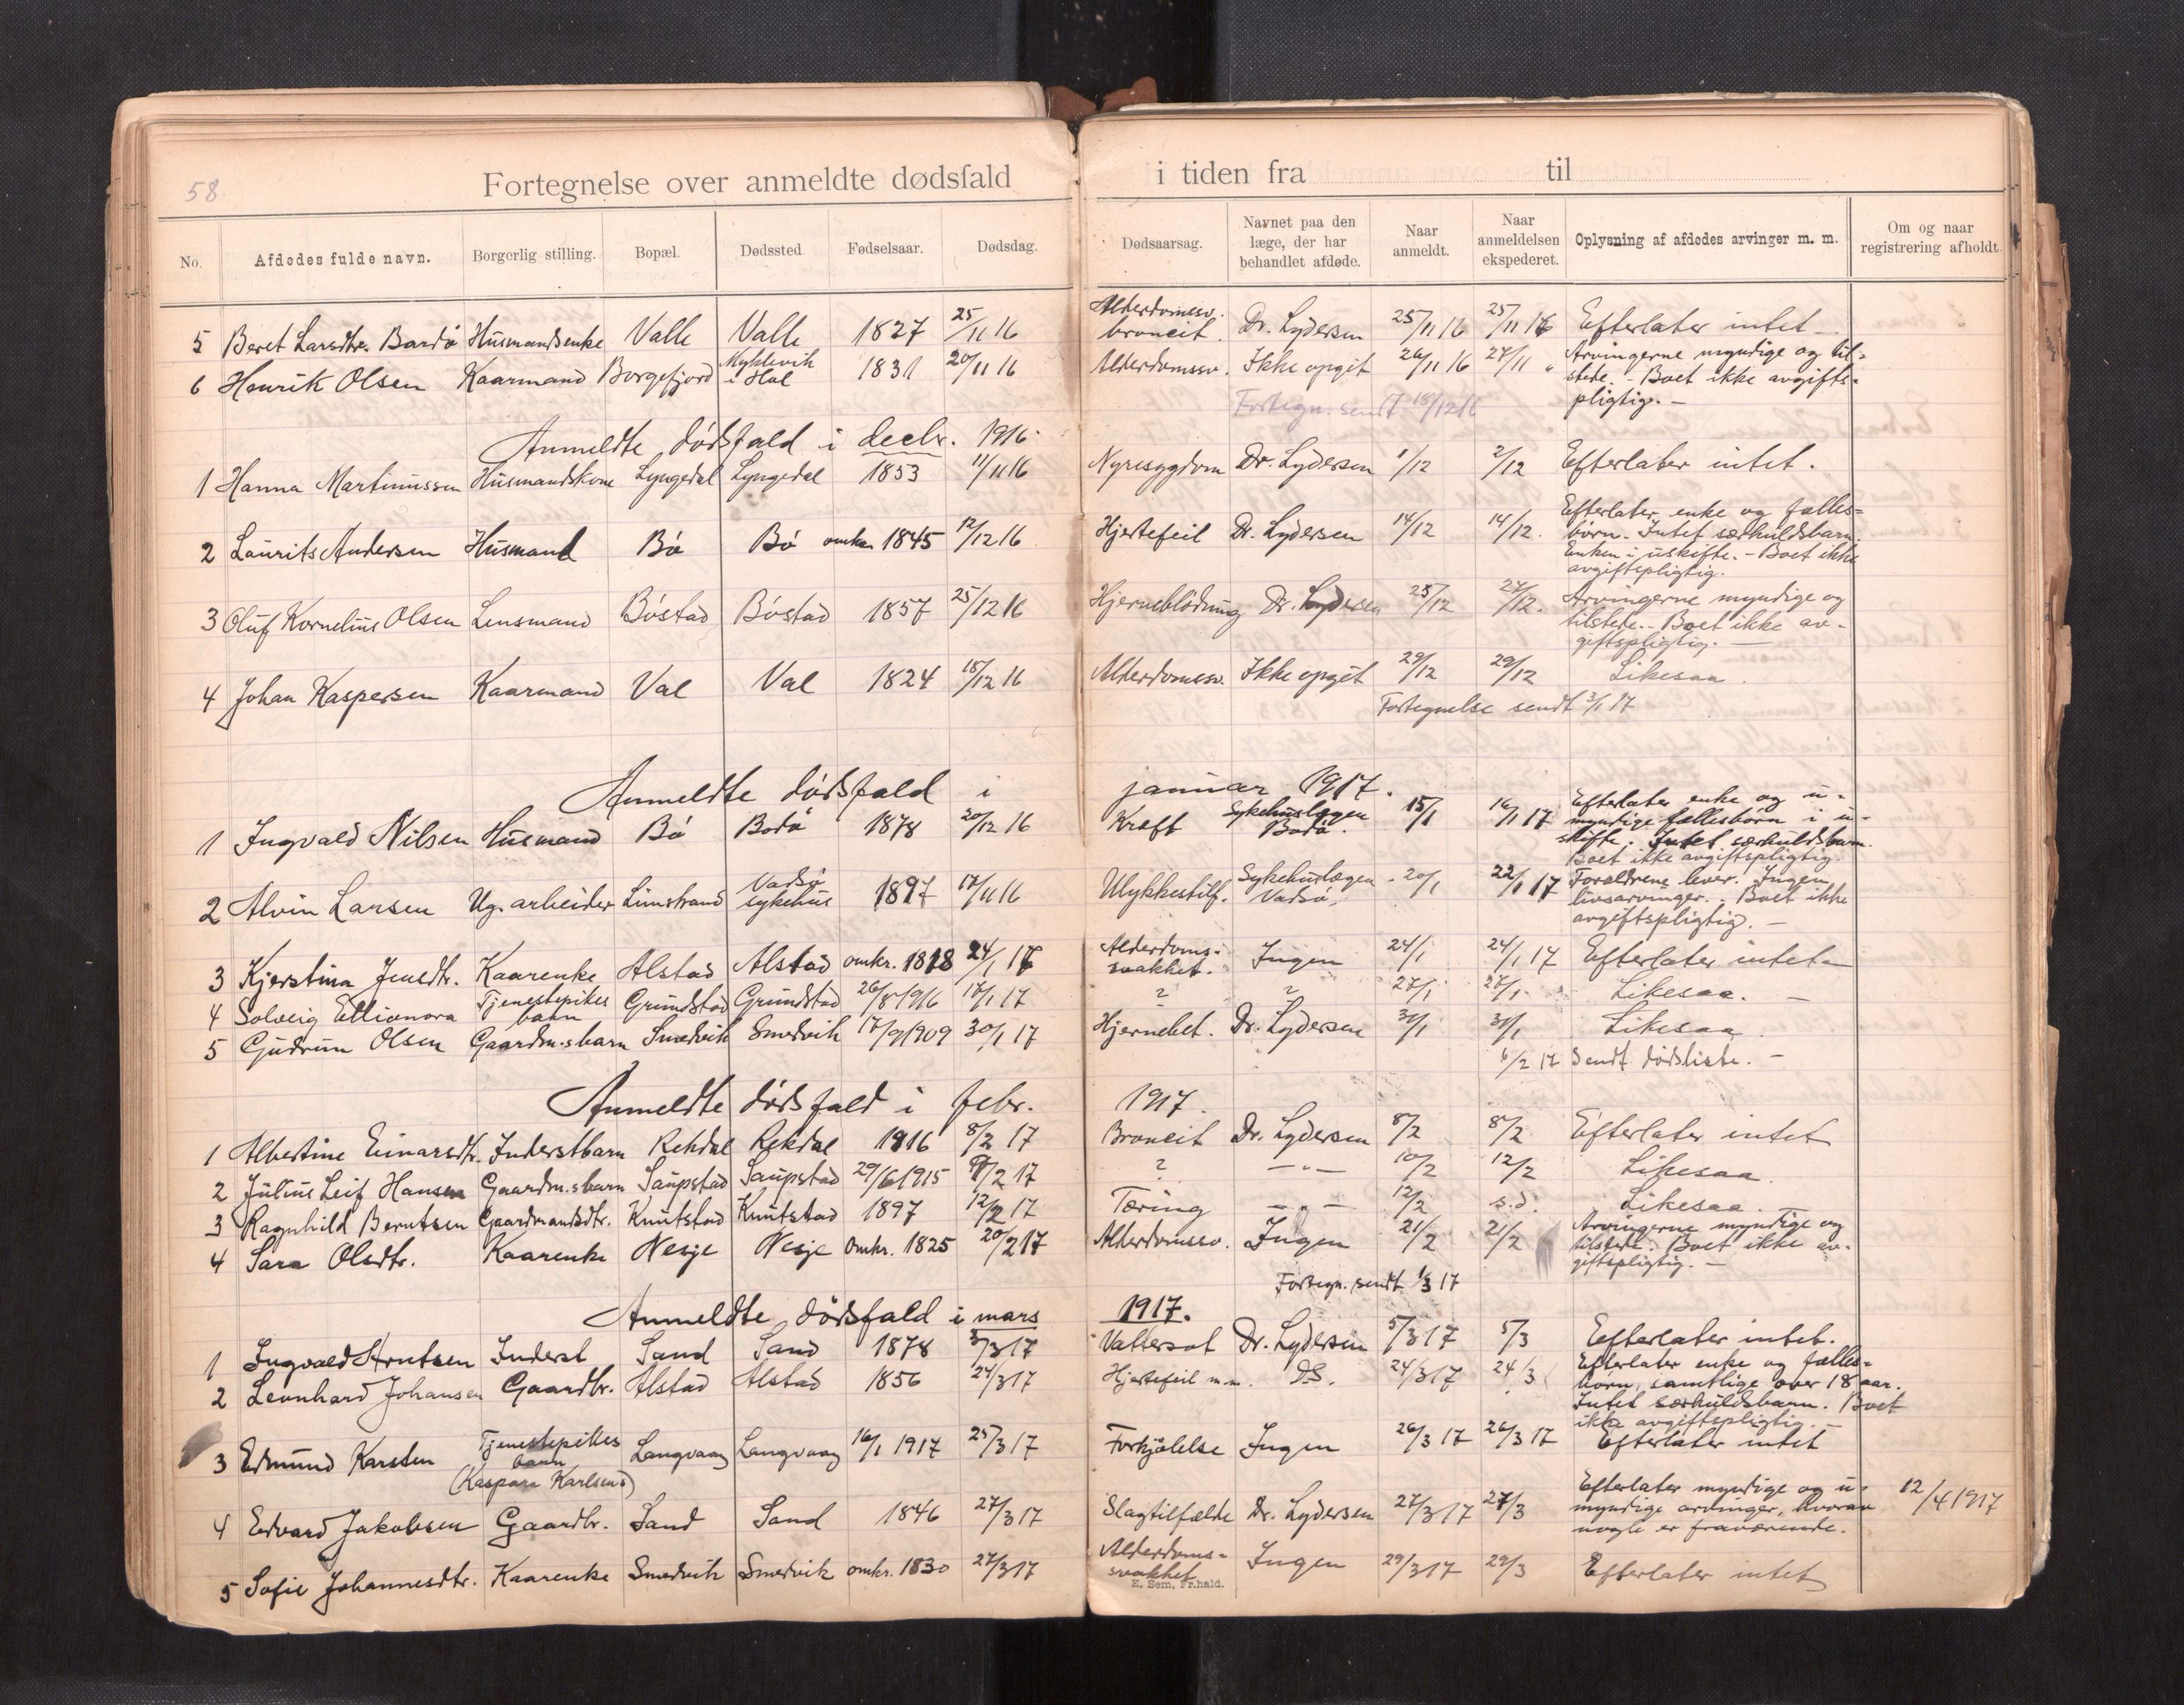 58
Fortegnelse over anmeldte dødsfald i tiden fra til
No. Afdødes fulde navn. Borgerlig stilling. Bopæl. Dødssted Fødselsaar. Dødsdag. Dødsaarsag. Navnet paa den læge, der har behandlet afdøde. Naar anmeldt. Naar anmeldelsen ekspederet. Oplysning af afdødes arvinger m. m. Om og naar registrering afholdt.
5 Beret Larsdtr. Bardö Husmandsenke Valle Valle 1827 25/11 16 Alderdomssv. broncit. Dr. Lydersen 25/11 16 25/11 16 Efterlater intet
6 Henrik Olsen Kaarmand Borgefjord Myklevik i Hol 1831 20/11 16 Alderdomssv. Ikke opgit 26/11 16 27/11 " Arvingerne myndige og til=
stede. - Boet ikke avgifts=
pligtig. -
Fortegn. sendt 18/12 16
Anmeldte dödsfald i decbr. 1916
1 Hanna Martinussen Husmandskone Lyngedal Lyngedal 1853 11/11 16 Nyresygdom Dr. Lydersen 1/12 2/12 Efterlater intet.
2 Laurits Andersen Husmand Bö Bö omkr. 1845 12/12 16 Hjertefeil Dr. Lydersen 14/12 14/12. Efterlater enke og fælles=
börn. Intet særkuldsbarn.
Enken i uskifte. - Boet ikke
avgiftspligtig.
3 Oluf Kornelius Olsen Lensmand Böstad Böstad 1857 25/12 16 Hjerneblödning Dr. Lydersen 25/12 27/12. Arvingerne myndige og
tilstede. - Boet ikke av-
giftspligtig. -
4 Johan Kaspersen Kaarmand Val Val 1824 18/12 16 Alderdomssv. Ikke opgit 29/12 29/12 Likesaa.
Fortegnelse sendt 3/1 17
Anmeldte dödsfald i januar 1917.
1 Ingvald Nilsen Husmand Bö Bodö 1878 20/12 16 Kræft Sykehuslægen Bodö. 15/1 16/1 17 Efterlater enke og u-
myndige fællesbörn i u-
skifte. Intet særkuldsbarn.
Boet ikke avgiftspligtig.
2 Alvin Larsen Ug. arbeider Limstrand Vadsö sykehus 1897 17/11 16 Ulykkestilf. Sykehuslægen Vadsö. 20/1 22/1 17 Forældrene lever. Ingen
livsarvinger. - Boet ikke
avgiftspligtig. -
3 Kjerstina Jensdtr. Kaarenke Alstad Alstad omkr. 1828 24/1 17 Alderdoms-
svakhet. Ingen 24/1 24/1 17 Efterlater intet
4 Solveig Ellionora Tjenestepikes barn Grundstad Grundstad 26/8 1916 17/1 17 ? ? 27/1 27/1 Likesaa. -
5 Gudrun Olsen Gaardm.sbarn Smedvik Smedvik 17/9 1909 30/1 17 Hjernebet. Dr. Lydersen 31/1 31/1 Likesaa.
6/2 17 Sendt dödsliste. -
Anmeldte dödsfald i febr. 1917.
1 Albertine Einarsdtr. Inderstbarn Rekdal Rekdal 1916 8/2 17 Broncit Dr. Lydersen 8/2 8/2 Efterlater intet
2 Julius Leif Hansen Gaardm.sbarn Saupstad Saupstad 29/6 1915 9/2 17 ? -"- 10/2 12/2 Likesaa.
3 Ragnhild Berntsen Gaardmandsdtr. Knutstad Knutstad 1897 12/2 17 Tæring -"- 12/2 s.d. Likesaa. -
4 Sara Olsdtr. Kaarenke Nesje Nesje Omkr. 1825 20/2 17 Alderdomssv. Ingen 21/2 21/2 Arvingerne myndige og
tilstede. Boet ikke av-
giftspligtig. -
Fortegn. sendt 1/3 17
Anmeldte dödsfald i mars 1917.
1 Ingvald Arntsen Inderst Sand Sand 1878 3/3 17 Vattersot Dr. Lydersen 5/3 17 5/3 Efterlater intet.
2 Leonhard Johansen Gaardbr. Alstad Alstad 1856 24/3 17 Hjertefeil m.m. DS. 24/3 17 24/3 Efterlater enke og fælles=
börn, samtlige over 18 aar.
Intet særkuldsbarn. Boet
ikke avgiftspligtig. -
3 Edmund Karsten Tjenestepikes barn (Kaspara Karlsens) Langvaag Langvaag 16/1 1917 25/3 17 Forkjölelse Ingen 26/3 17 26/3 17 Efterlater intet
4 Edvard Jakobsen Gaardbr. Sand Sand 1846 27/3 17 Slagtilfælde Dr. Lydersen 27/3 17 27/3 Efterlater myndige og u-
myndige arvinger, hvorav
nogle er fraværende. 12/4 1917
5 Sofie Johannesdtr. Kaarenke Smedvik Smedvik omkr. 1830 27/3 17 Alderdoms-
svakhet Ingen 29/3 17 29/3 Efterlater intet
E. Sem, Fr.hald.